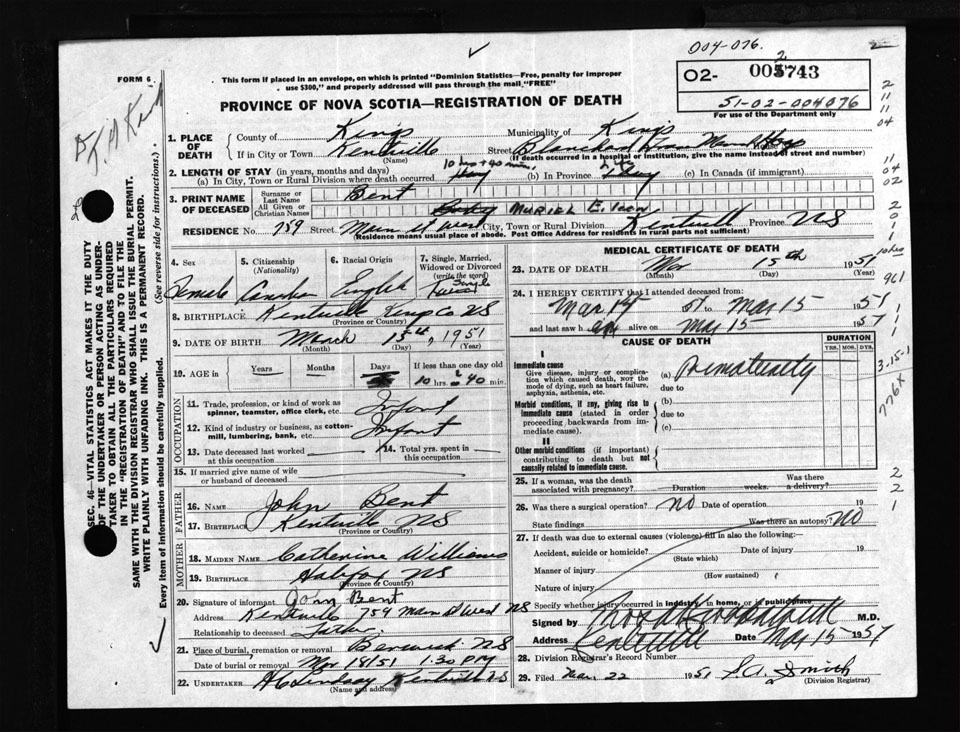 004-076.
2
FORM 6
This form if placed in an envelope, on which is printed "Dominion Statistics—Free, penalty for improper
use $300," and properly addressed will pass through the mail "FREE"
02- 005743
2
51-02-004076
For use of the Department only
PROVINCE OF NOVA SCOTIA—REGISTRATION OF DEATH
SEC. 46—VITAL STATISTICS ACT MAKES IT THE DUTY
OF THE UNDERTAKER OR PERSON ACTING AS UNDER-
TAKER TO OBTAIN ALL THE PARTICULARS REQUIRED
IN THE "REGISTRATION OF DEATH" AND TO FILE THE
SAME WITH THE DIVISION REGISTRAR WHO SHALL ISSUE THE BURIAL PERMIT.
WRITE PLAINLY WITH UNFADING INK. THIS IS A PERMANENT RECORD.
Every item of information should be carefully supplied. (See reverse side for instructions.)
1. PLACE OF DEATH
County of Kings Municipality of Kings
If in City or Town Kentville Street Blanchard
(Name) (If death occurred in a hospital or institution, give the name instead of street and number)
2. LENGTH OF STAY (in years, months and days) 10 hrs + 40 min.
(a) In City, Town or Rural Division where death occurred (b) In Province (c) In Canada (if immigrant)
3. PRINT NAME OF DECEASED
Surname or Last Name Bent
All Given or Christian Names MURIEL EILEEN
RESIDENCE No. 759 Street Main St West City, Town or Rural Division Kentville Province NS
(Residence means usual place of abode. Post Office Address for residents in rural parts not sufficient)
4. Sex Female
5. Citizenship (Nationality) Canadian
6. Racial Origin English
7. Single, Married, Widowed or Divorced (write the word) Single
8. BIRTHPLACE Kentville Kings Co NS
(Province or Country)
9. DATE OF BIRTH March 15th, 1951
(Month) (Day) (Year)
10. AGE in Years Months Days If less than one day old
10 hrs. 40 min.
OCCUPATION
11. Trade, profession, or kind of work as
spinner, teamster, office clerk, etc. Infant
12. Kind of industry or business, as cotton-
mill, lumbering, bank, etc. Infant
13. Date deceased last worked
at this occupation
14. Total yrs. spent in
this occupation
15. If married give name of wife
or husband of deceased
FATHER
16. NAME John Bent
17. BIRTHPLACE Kentville NS
(Province or Country)
MOTHER
18. MAIDEN NAME Catherine Williams
19. BIRTHPLACE Halifax NS
(Province or Country)
20. Signature of informant John Bent
Address Kentville 759 Main St West NS
Relationship to deceased Father
21. Place of burial, cremation or removal Berwick NS
Date of burial or removal Mar 18/51 1:30 PM
22. UNDERTAKER H C Lindsay Kentville NS
(Name and address)
MEDICAL CERTIFICATE OF DEATH
23. DATE OF DEATH Mar 15th 1951
(Month) (Day) (Year)
24. I HEREBY CERTIFY that I attended deceased from:
Mar 14 51 to Mar 15 1951
and last saw h er alive on Mar 15 1951
CAUSE OF DEATH
DURATION
YRS. MOS. DYS.
I
Immediate cause
Give disease, injury or complica-
tion which caused death, NOT the
mode of dying, such as heart failure,
asphyxia, asthenia, etc.
(a) Prematurity
due to
Morbid conditions, if any, giving rise to
immediate cause (stated in order
proceeding backwards from im-
mediate cause).
(b)
due to
(c)
II
Other morbid conditions (if important)
contributing to death but not
causally related to immediate cause.
25. If a woman, was the death
associated with pregnancy? Duration weeks. Was there
a delivery?
26. Was there a surgical operation? NO Date of operation 19
State findings Was there an autopsy? NO
27. If death was due to external causes (violence) fill in also the following:—
Accident, suicide or homicide? Date of injury 19
(State which)
Manner of injury
(How sustained)
Nature of injury
Specify whether injury occurred in industry, in home, or in public place
Signed by M.D.
Address Kentville Date Mar 15 1951
28. Division Registrar's Record Number
29. Filed Mar. 22 1951 Smith
(Division Registrar)
2
11
04
11
04
02
2
0
1
0
10 hrs
961
1
1
3-15-1
776X
2
2
1